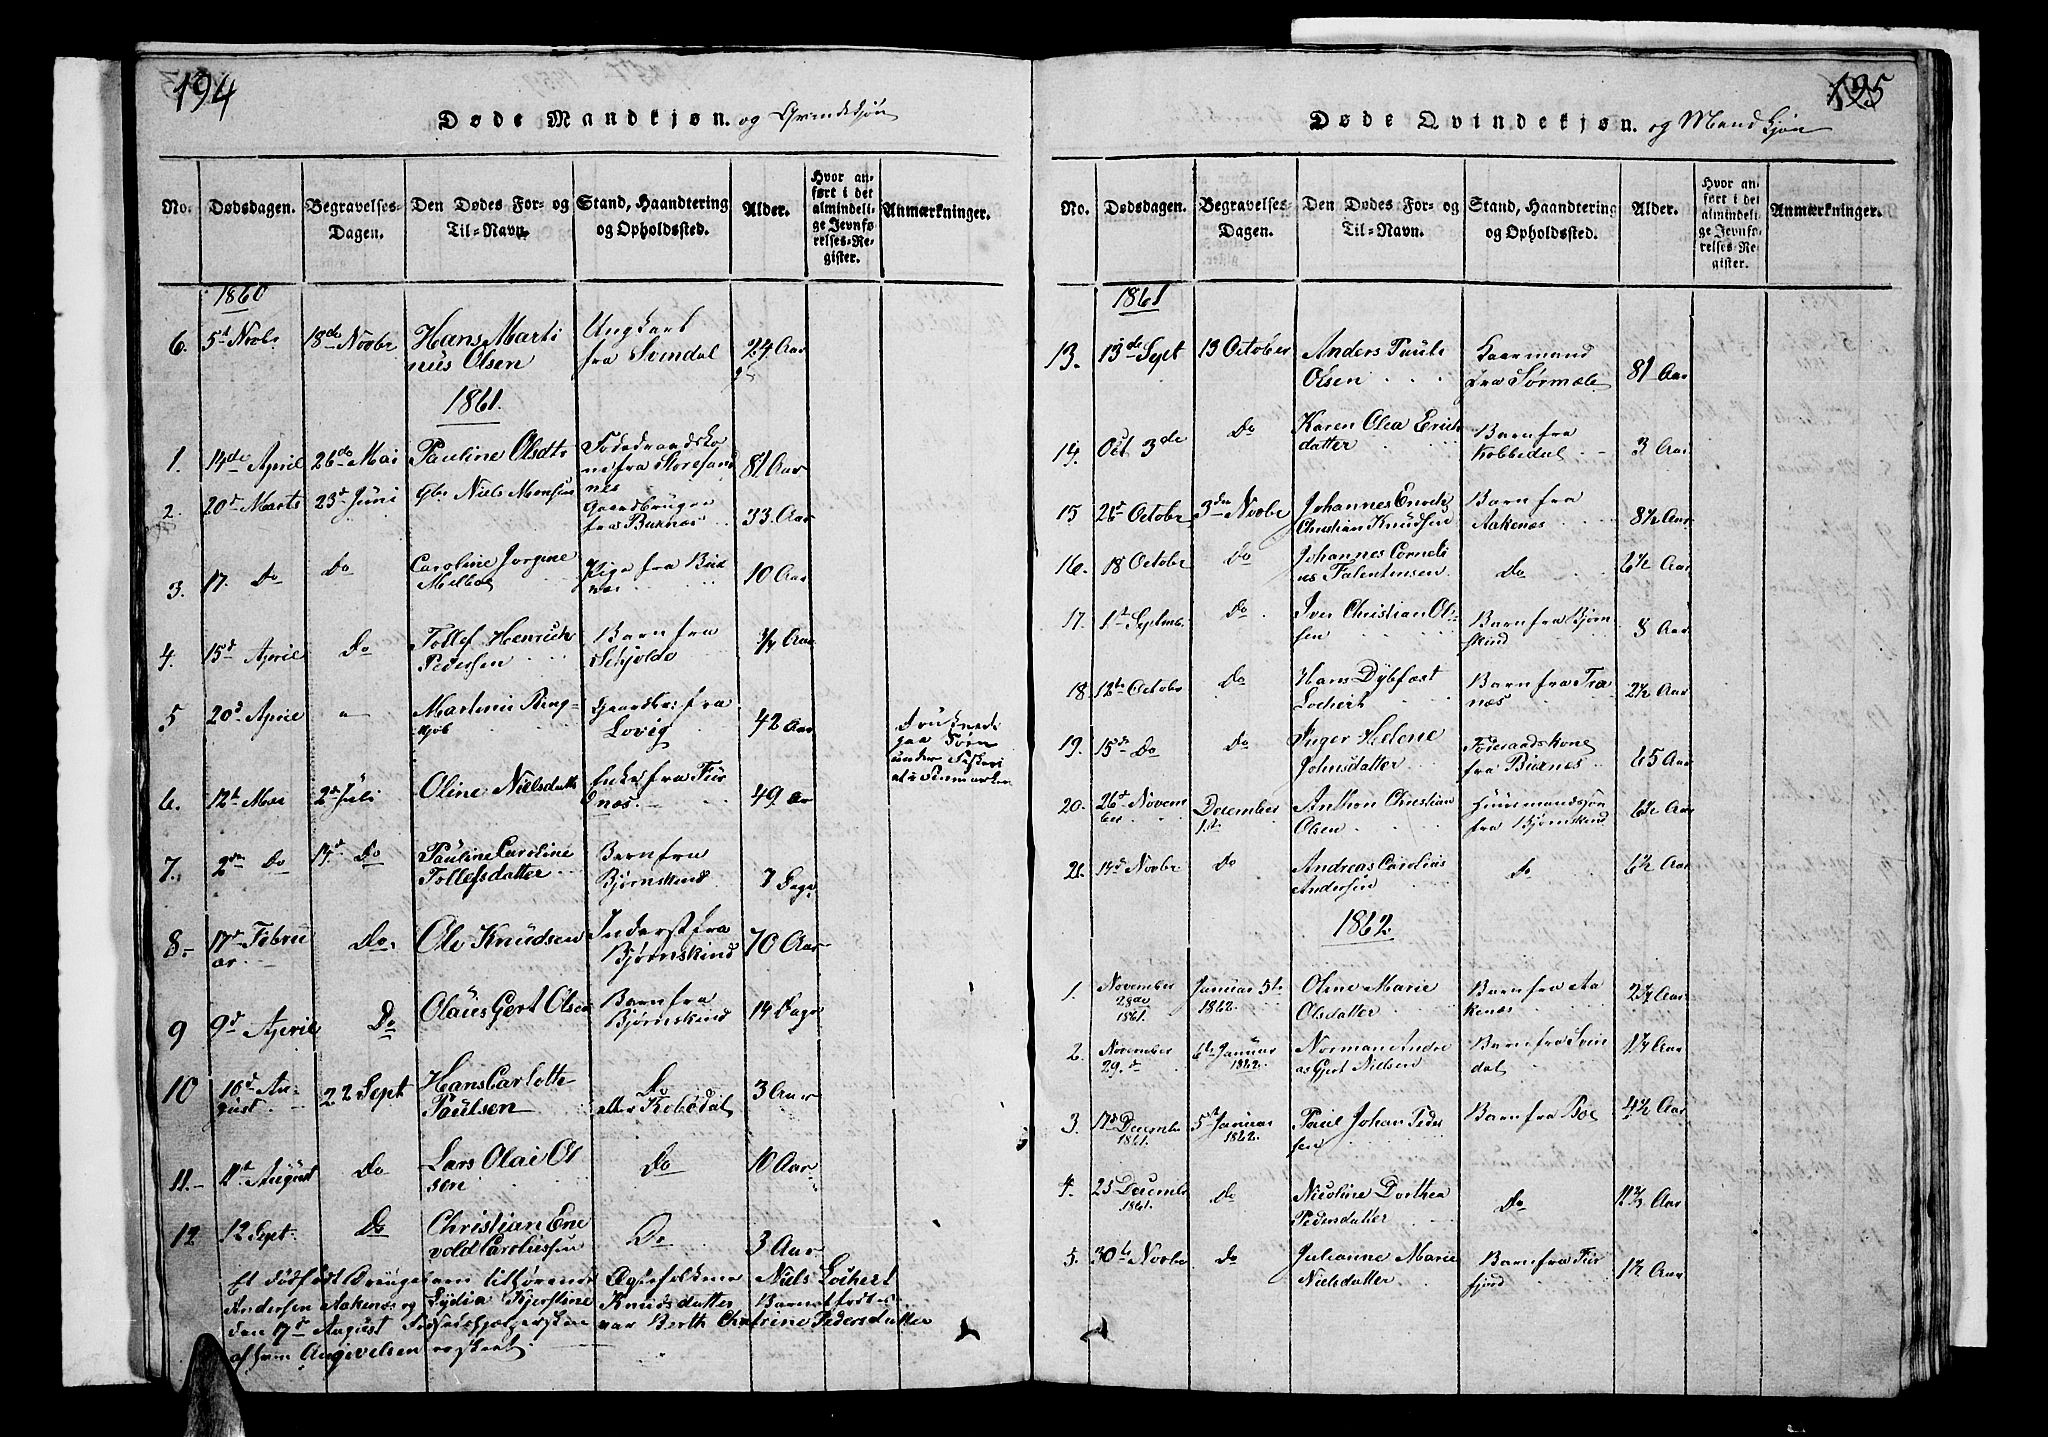 194
Døde Mandkjøn. og Qvindekjøn
No. Dødsdagen. Begravelses-Dagen. Den Dødes For- og Til-Navn. Stand, Haandtering og Opholdssted. Alder. Hvor anført i det almindelige Jevnførelses-Register. Anmærkninger.
1860
6. 5t Novbr 18de Novbr Hans Martinus Olsen Ungkarl fra Svindal 24 Aar
1861.
1. 14de April 26de Mai Pauline Olsdtr fra Storesandnes 81 Aar
2. 20d Marts 23d Juni Niels Monsen Gaardbruger fra Buxnæs 33 Aar
3. 17. Do Do Caroline Jorgine Melboe Pige fra 10 Aar
4. 15d April Do Tollef Henrich Pedersen Barn fra Schjolde ¾ Aar
5 20d April " Martinus Ring- Gaardbr fra Lovig 42 Aar Druknede paa Søen under Fiskeri
6. 12t Mai 2d Juli Oline Nielsdatter Enke fra 49 Aar
7. 2den Do 14d Do Pauline Caroline Tollefsdatter Barn fra Bjørnskind 7 Dage
8- 17d Februar Do. Ole Knudsen Inderst fra Bjørnskind 70 Aar
9 9d April Do Olaus Gert Olsen Barn fra Bjørnskind 14 Dage
10 10d August 22 Sept Hans Carlotte Paulsen Do Kobedal 3 Aar
11.- 11t August Do Lars Olai Olsen Do 10 Aar
12 12 Sept Do Christian Enevold Caroliussen Do 3 Aar
Et dødfødt Drengebarn tilhørende Ægtefolkene Niels Lochert
Andersen Aakenæs og Lydia Kjerstine Knudsdatter Barnet fødtes
den 17d August Jordemoder var Berth Chatrine Pedersdatter
af hvem Angivelsen er skeet.
195
Døde Qvindekjøn. og Mandkjøn
No. Dødsdagen. Begravelses-Dagen. Den Dødes For- og Til-Navn. Stand, Haandtering og Opholdssted. Alder. Hvor anført i det almindelige Jevnførelses-Register. Anmærkninger.
1861
13. 13de Sept 13 October Anders Pauls Olsen Kaarmand fra Sørmele 81 Aar
14. Oct 3de Do Karen Olea Erichdatter Barn fra Kobbedal 3 Aar
15 28d Octobr 3die Novbr Johannes Enoch Christian Knudsen Barn fra Aakenæs 8½ Aar
16. 18 Octobr Do Johannes Cornelius Falentinsen Do 6½ Aar
17. 1d Septmb. Do Iver Christian Olsen Barn fra Bjørnskind 8 Aar
18. 12te Octobr Do Hans Dybfæst Lochert Barn fra Tranæs 2½ Aar
19. 15d Do Do Inger Helene Johnsdatter Føderaadskone fra Buxnæs 65 Aar
20. 26d November December 1ste Anthon Christian Olsen Huusmandssøn fra Bjørnskind 6½ Aar
21. 14d Novbr Do Andreas Carolius Andersen Do 6½ Aar
1862.
1. November 28de 1861. Januar 5te 1862. Oline Marie Olsdatter Barn fra Aakenæs 2¾ Aar
2. November 29.d 6te Januar 1862. Norman Andreas Gjert Nielsen Barn fra Svindal 1¼ Aar
3. 17d Decembr 1861. 5t Januar 1862. Paul Johan Pedersen Barn fra Boe 4½ Aar
4. 25 Decembr 1861. Do Nicoline Dorthea Pedersdatter Do 11½ Aar
5. 30te Novbr Do Julianne Marie Nielsdatter Barn fra 1½ Aar